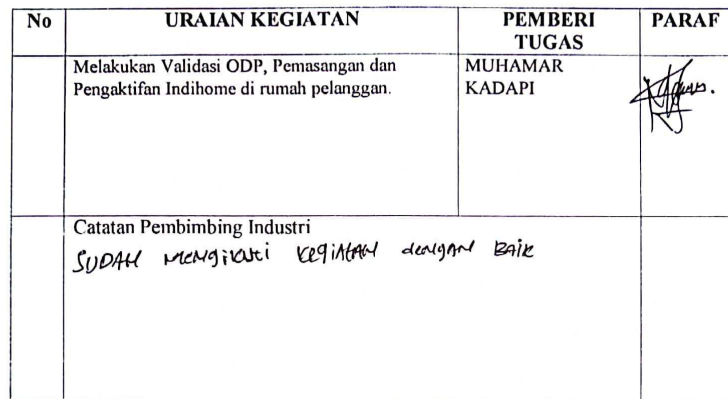 No URAIAN KEGIATAN PEMBERI TUGAS PARAF
Melakukan Validasi ODP, Pemasangan dan
Pengaktifan Indihome di rumah pelanggan.
MUHAMAR
KADAPI
Catatan Pembimbing Industri
SUDAH MENGikuti KEGIATAN dENGAN BAIK